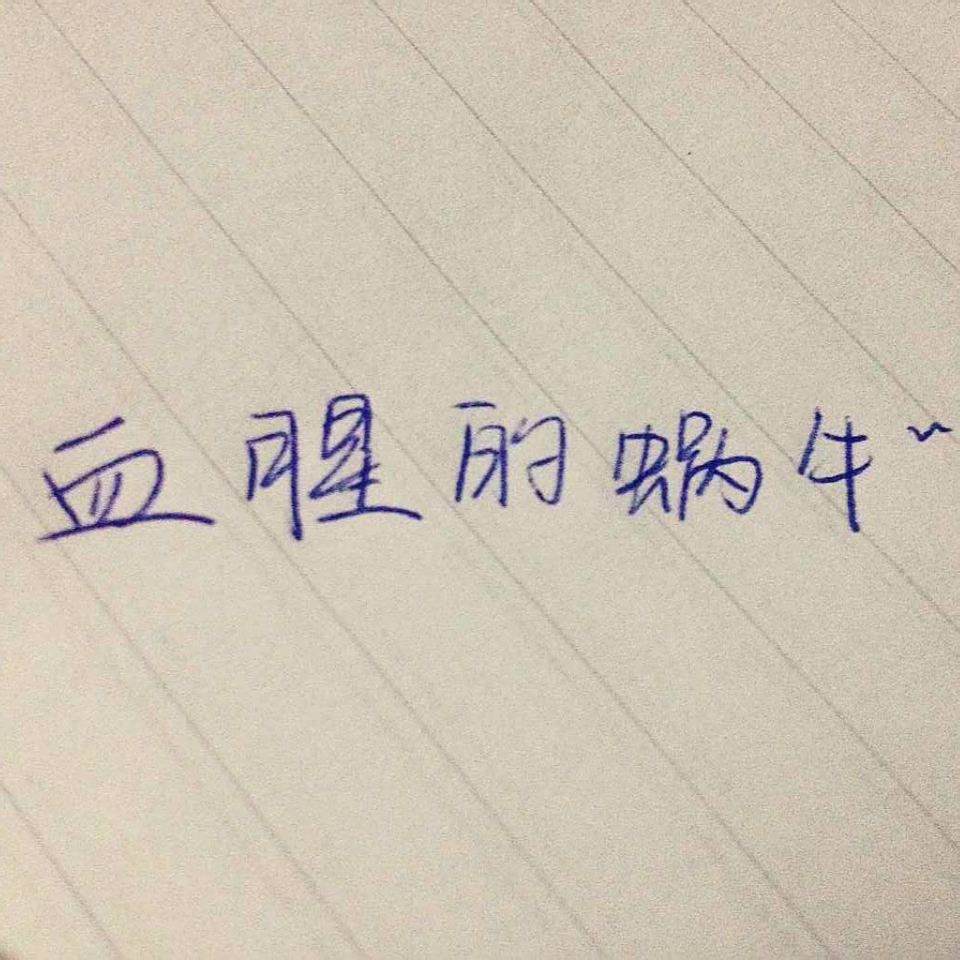 血腥的蜗牛~